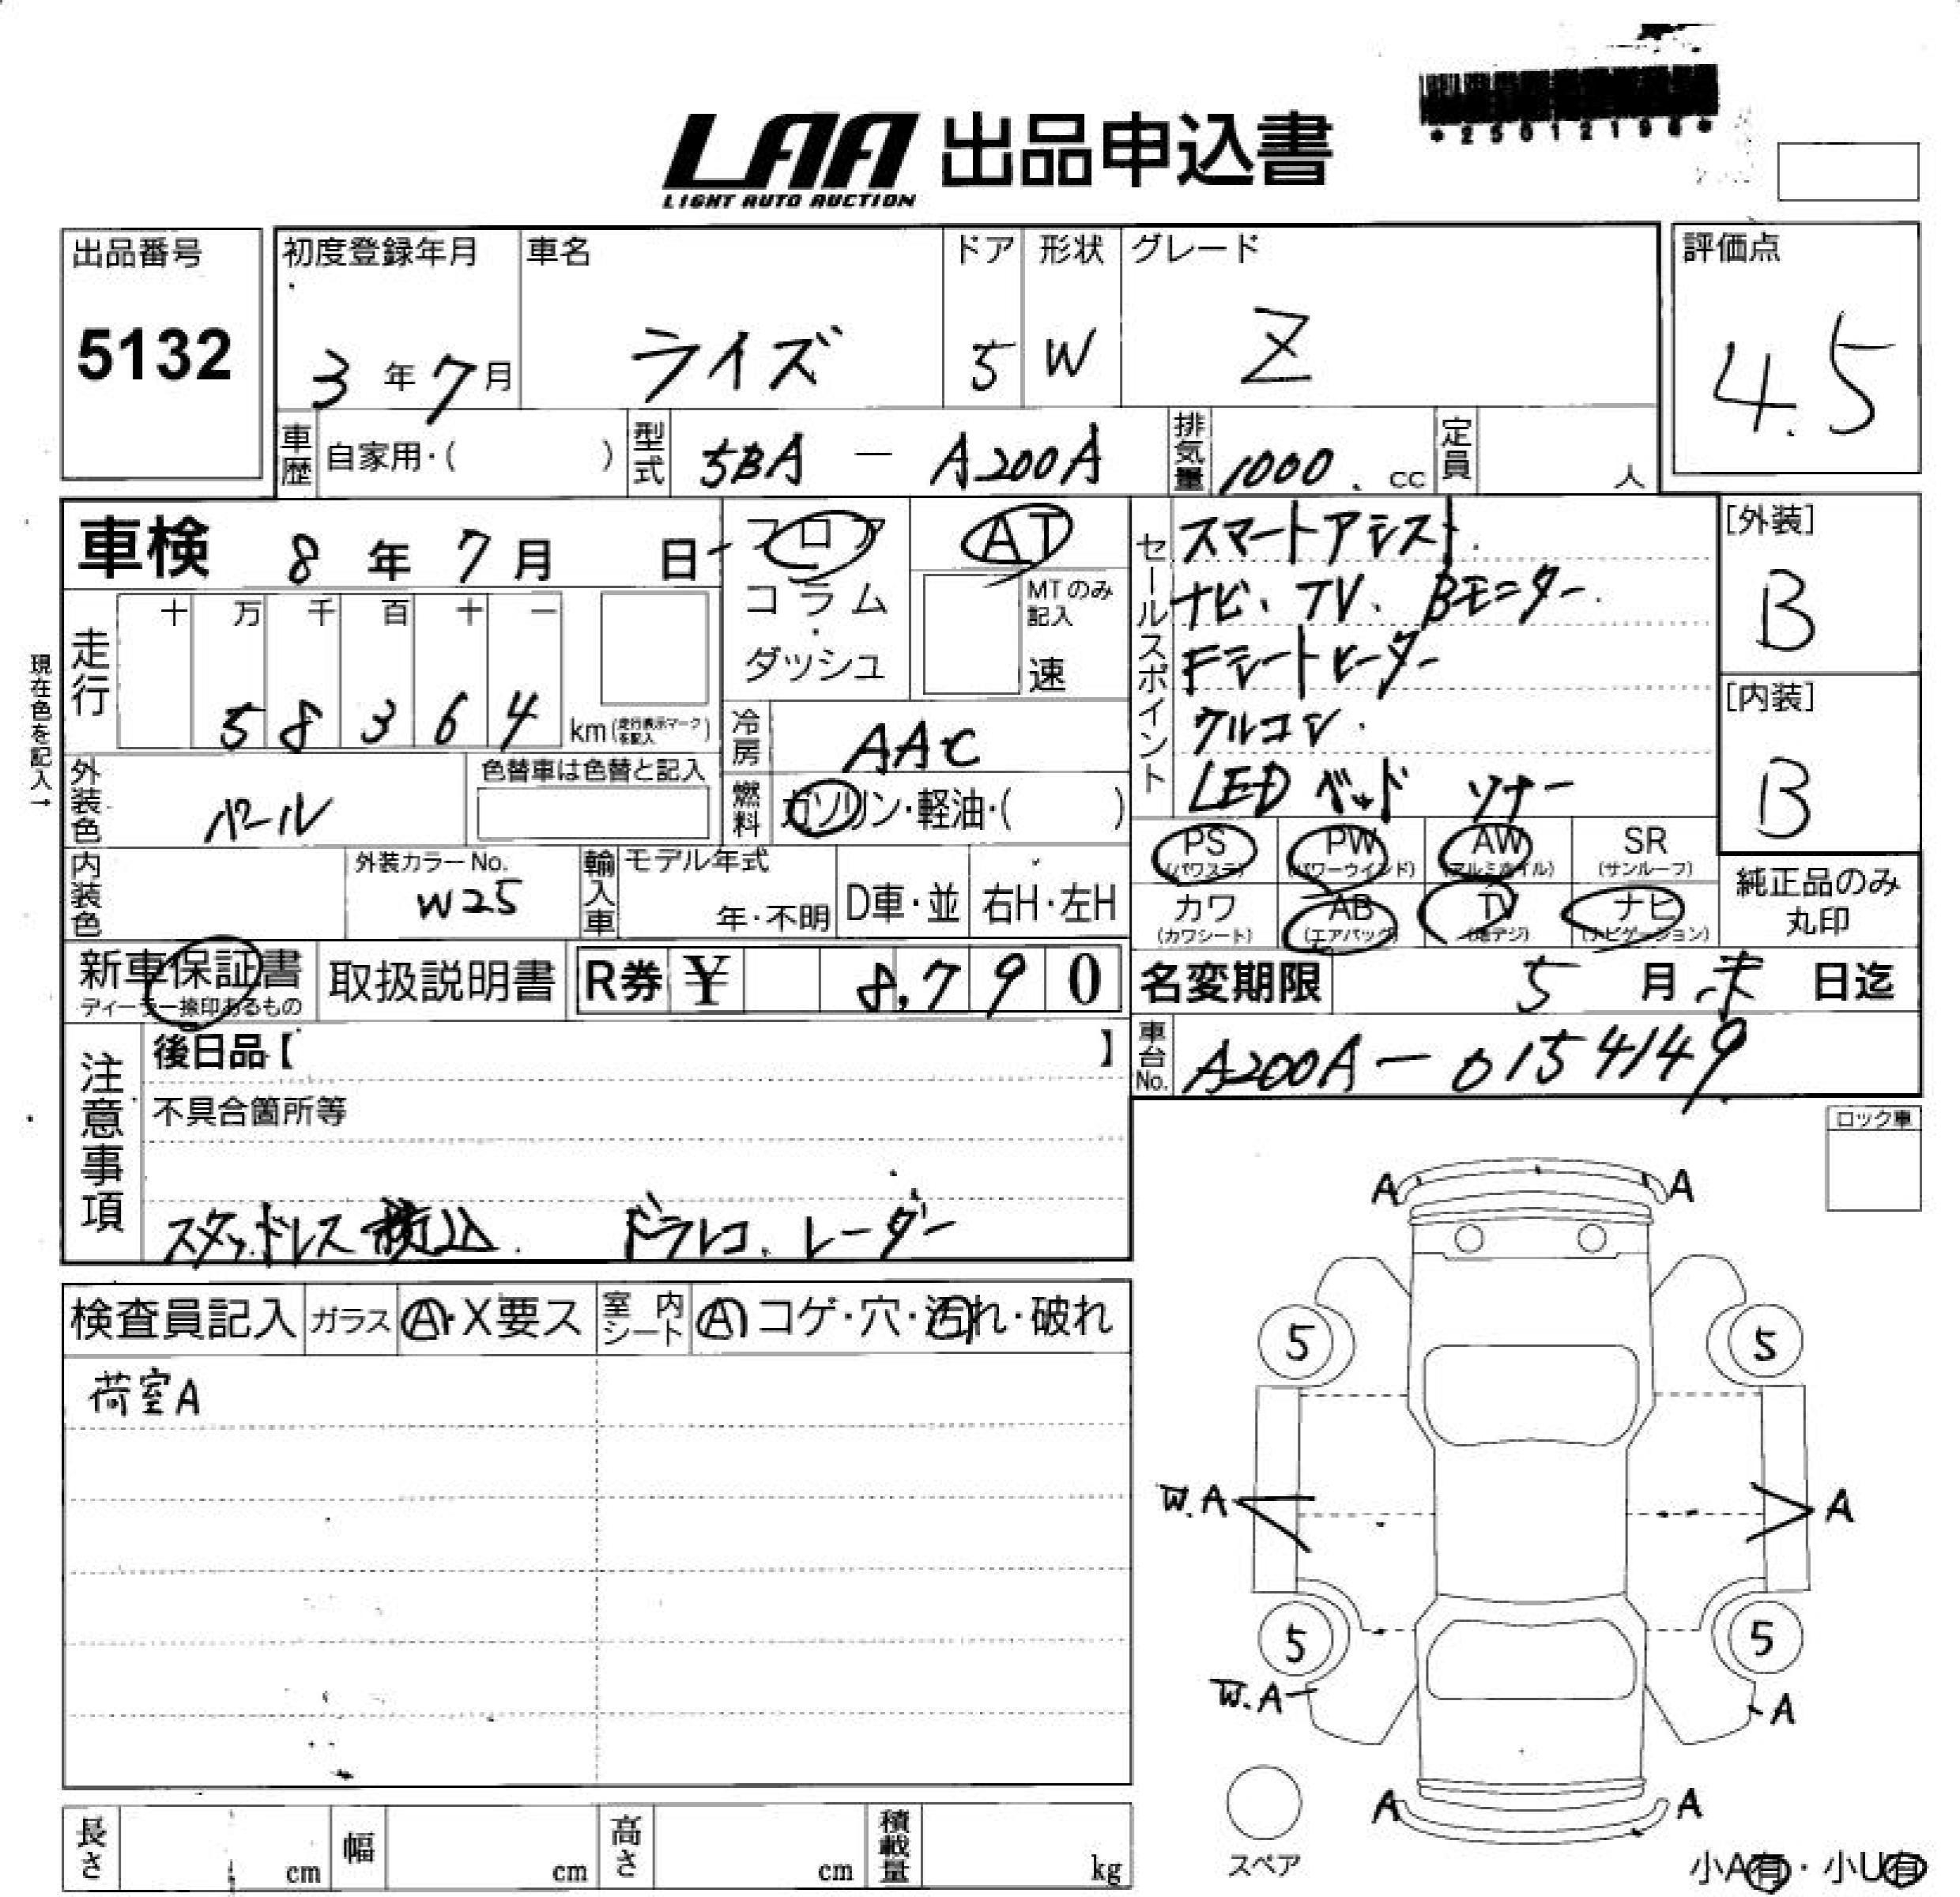 LAA 出品申込書
LIGHT AUTO AUCTION
出品番号
5132
初度登録年月
3年7月
車名
ライズ
ドア
5
形状
W
グレード
Z
評価点
4.5
車歴 自家用・( )
型式 5BA - A200A
排気量 1000. cc
定員 人
車検 8年7月 日
フロア
コラム
・
ダッシュ
AT
MTのみ記入
速
現在色を記入→
走行
十 万 千 百 十 一
5 8 3 6 4 km(走行表示マークを記入)
冷房 AAC
燃料 ガソリン・軽油・( )
外装色 パール
色替車は色替と記入
内装色
外装カラーNo.
W25
輸入車
モデル年式
年・不明
D車・並
右H・左H
セールスポイント
スマートアシスト.
ナビ、TV、Bモニター.
Fシートヒーター
クルコン.
LED ヘッド ソナー
[外装]
B
[内装]
B
PS (パワステ)
PW (パワーウインド)
AW (アルミホイル)
SR (サンルーフ)
カワ (カワシート)
AB (エアバック)
TV (地デジ)
ナビ (ナビゲーション)
純正品のみ
丸印
新車保証書
ディーラー捺印あるもの
取扱説明書
R券 ¥ 8,790
名変期限 5月末日迄
車台No. A200A-0154149
注意事項
後日品【 】
不具合箇所等
スタッドレス積込. ドラレコ、レーダー
ロック車
検査員記入
ガラス A・X要ス
室内シート A コゲ・穴・汚れ・破れ
荷室A
A A
5 5
W.A A
5 5
W.A A
A A
スペア
小A有・小U有
長さ cm
幅 cm
高さ cm
積載量 kg